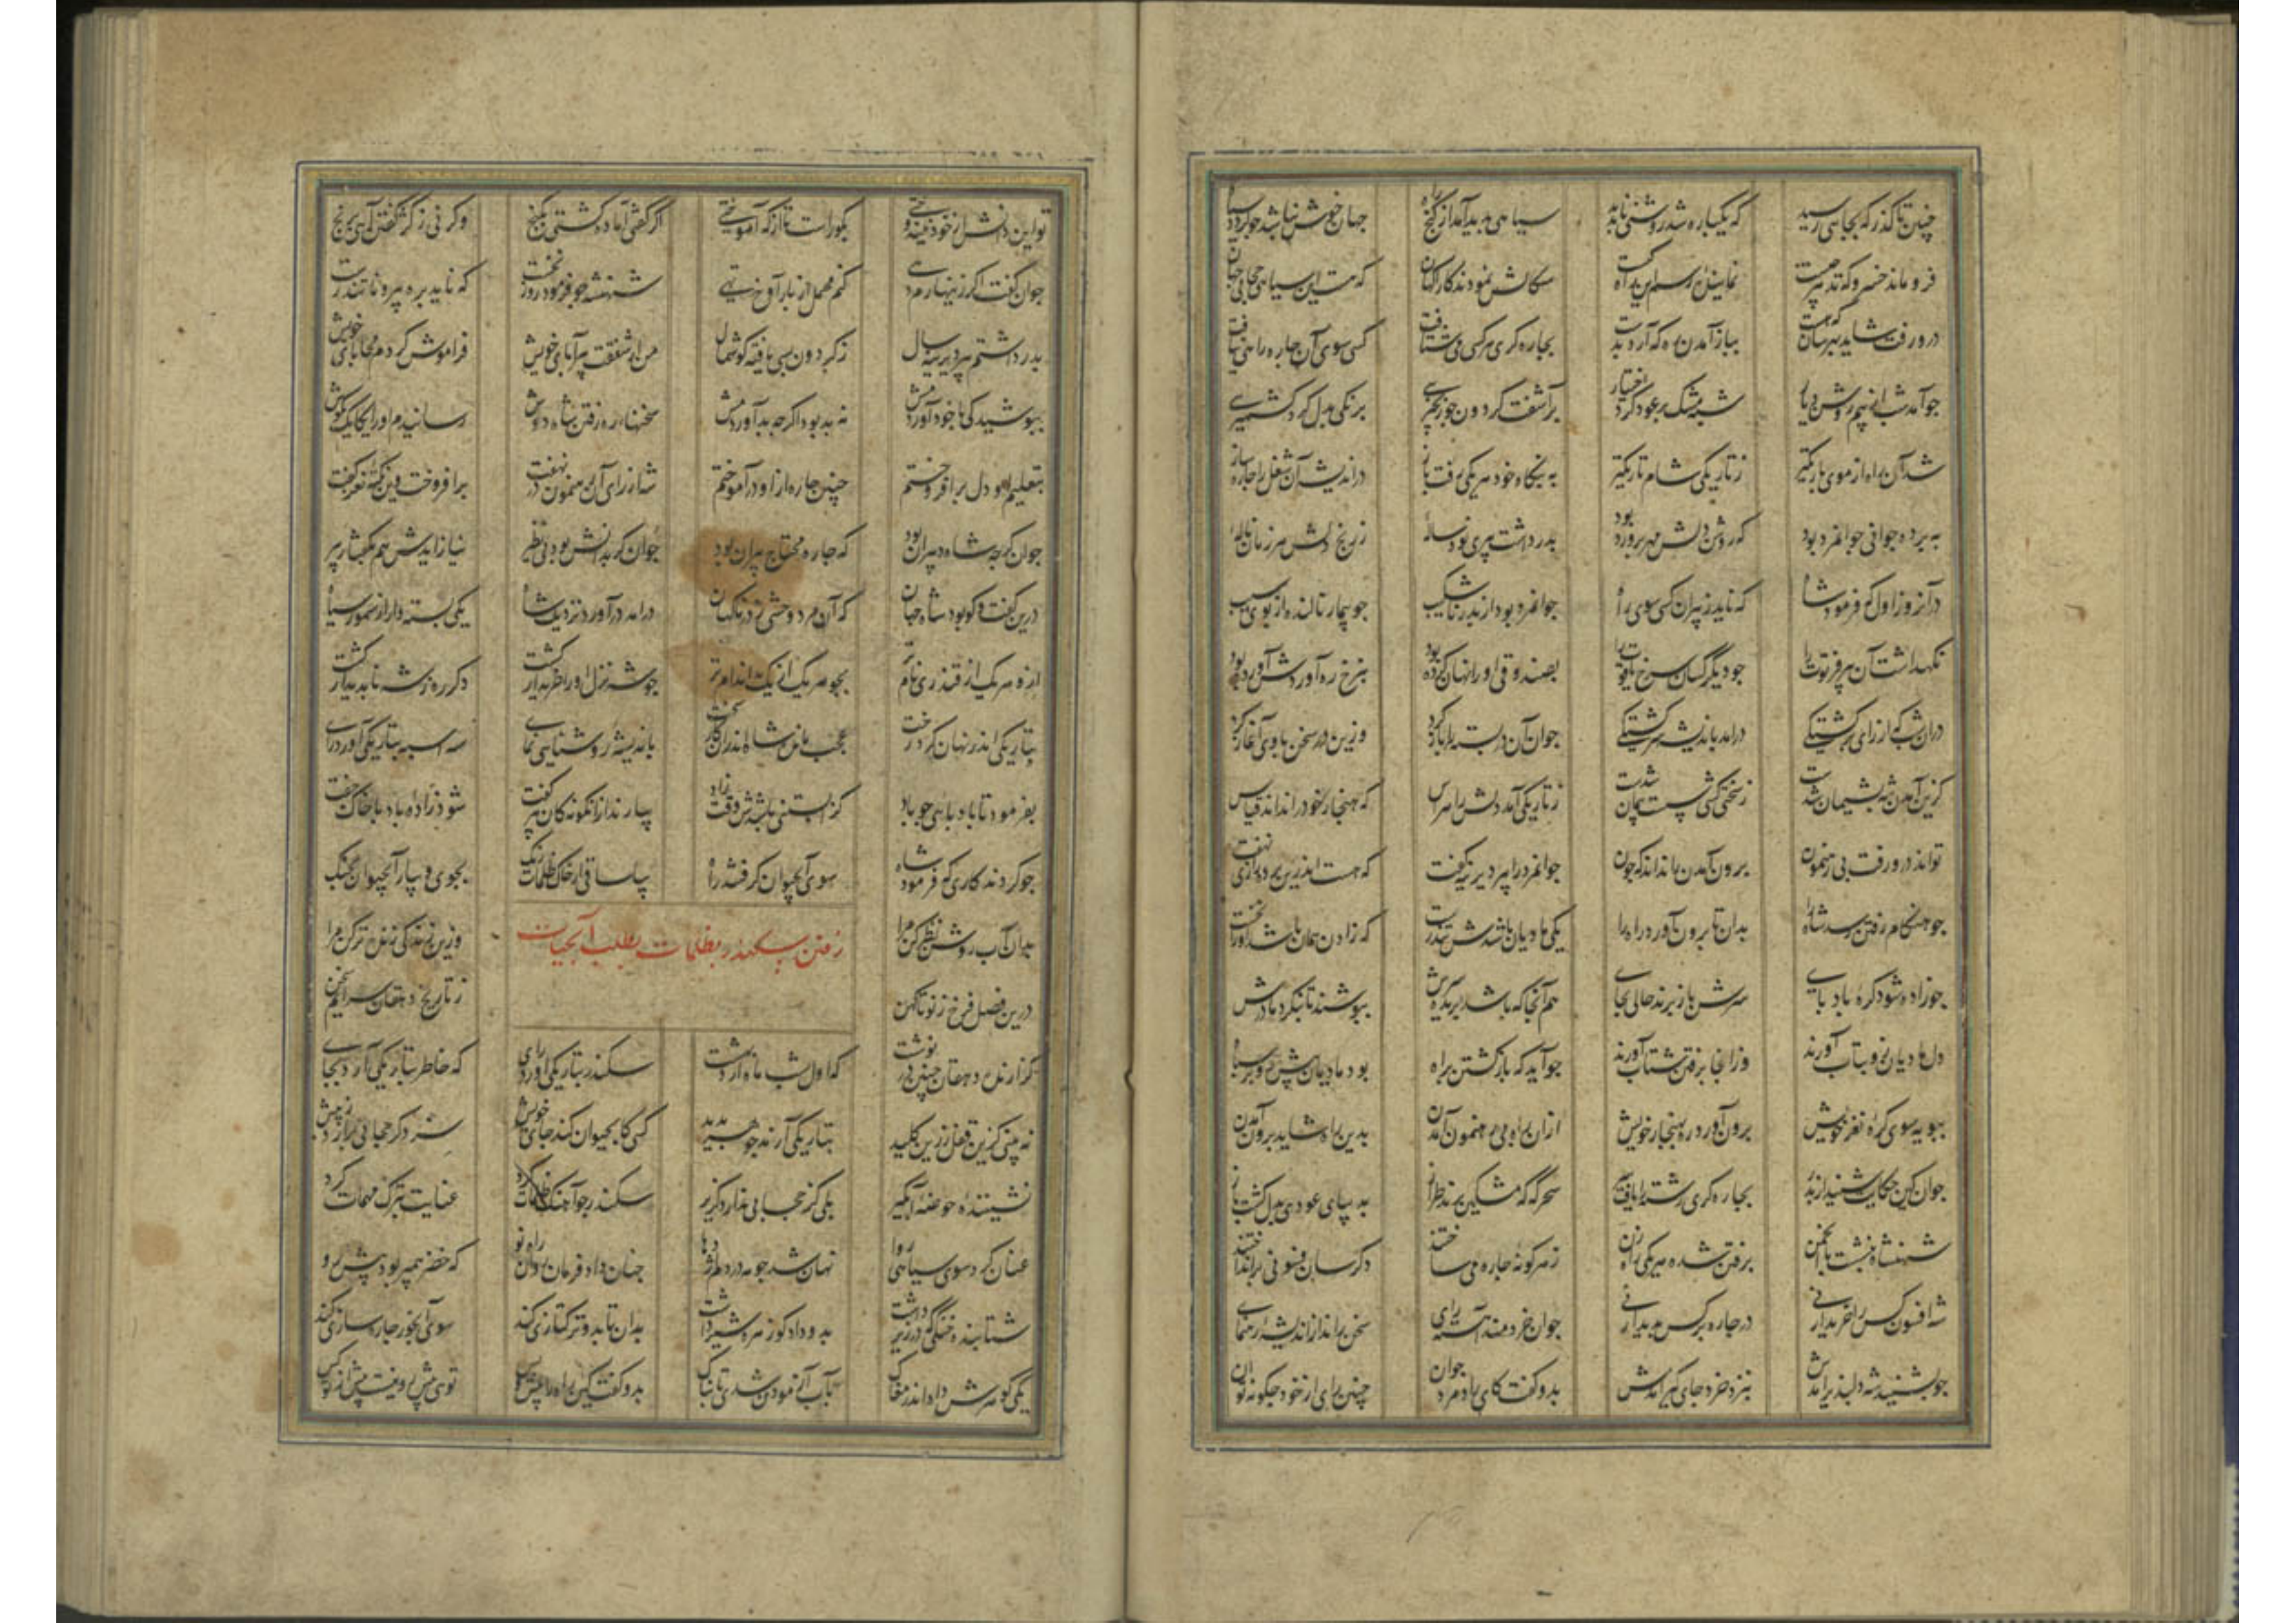 چنین تا گذرگه بجایی رسید که یکباره شد روشنی ناپدید سیاهی پدید آمد از کنج راه جهان خوش نباشد چو گردد سیاه
فرو ماند خسرو که تدبیر چیست نماینده رسم این راه کیست سگالش نمودند کارآگهان که هست این سیاهی حجابی
درو رفت شاید بهرسان که هست بباز آمدن ره که آرد بدست بچاره گری هر کسی می شتافت کسی سوی آن چاره راهی نیافت
چو آمد شب از نیم روشن دیار شبه مشک بر عود کرد اختیار برآشفت گردون چو برنگی بدل کرد کشمیری
شد آن راه از موی باریکتر ز تاریکی شام تاریکتر به بنگاه خود هر یکی رفت باز در اندیشه آن شغل را چاره ساز
به برده جوانی جوانمرد بود که روشن دلش مهرپرورد بود پدر داشت پیری نودساله ز رنج دلش هر زمان ناله
در آن روز اول که فرمود شاه که ناید ز پیران کسی سوی راه جوانمرد بود از پدر ناشکیب چو بیمار نالنده از بوی سیب
نگهداشت آن پیر فرتوت را چو دیگر کسان سرخ یاقوت را بصندوقی او را نهان کرده بود بنرخ ره آوردش آورده بود
در آن شب که از رای برگشتگی درآمد باندیشه سرگشتگی جوان آن در بسته را باز کرد وزین در سخن با وی آغاز کرد
کزین آمدن شه پشیمان شدست ز سختی کشی سست پیمان شدست ز تاریکی آمد دلش را هراس که هنجار خود را نداند قیاس
تواند درو رفت بی رهنمون برون آمدن را نداند که چون جوانمرد را پیر دیرینه گفت که هست اندرین پرده رازی نهفت
چو هنگام رفتن رسد شاه را بدان تا برون آورد راه را یکی مادیان باشدش تندرست که زادن همان باشد او را نخست
چو زاده شود کره بادپای سرش باز برند حالی بجای هم آنجا که باشد بریده سرش بپوشند تا ننگرد مادرش
دل مادیان زو بتاب آورند وز آنجا برفتن شتاب آورند چو آید که بازگشتن براه بود مادیان پیش رو بر سپاه
بپوید سوی کره نغز خویش برون آورد ره بهنجار خویش ازان راه بی رهنمون آمدن بدین راه شاید برون آمدن
جوان کین حکایت شنید از پدر بچاره گری رشته را یافت سر سحرگه که مشکین پرند طراز به دیبای عودی بدل گشت باز
شهنشاه بنشست با انجمن برفتن شده هر یکی رای زن ز هر گونه چاره می ساختند دگر سان فسونی برانداختند
شه افسون کس را خریدار نی در چاره بر کس پدیدار نی جوان خردمند آهسته رای سخن راند از اندیشه رهنمای
چو بشنید شه دلپذیر آمدش بنزد خرد جای گیر آمدش بدو گفت کای زاد مرد جوان چنین رای از خود چگونه توان
تو این دانش از خود نیندوختی بگو راست تا از که آموختی اگر گفتی آباد گشتی بگنج وگرنی ز کژ گفتن آیی برنج
جوان گفت اگر زینهارم دهی کنم محمل از بار آوخ تهی شهنشه چو فرمود روز نخست که ناید بره پیر نا تندرست
پدر داشتم پیر دیرینه سال ز گردون بسی یافته گوشمال من از شفقت پیر آبای خویش فراموش کردم محابای خویش
بپوشیدگی با خود آوردمش نه بد بود اگر چه بد آوردمش سخنهای ره رفتن شاه دوش رسانیدم او را یکایک بگوش
بتعلیم او دل برافروختم چنین چاره از او درآموختم شه از رای آن رهنمون در نهفت برافروخت وین نکته نغز گفت
جوان گرچه شاه دلیران بود که چاره محتاج پیران بود جوان گر بدانش بود بی نظیر نیاز آیدش هم بگفتار پیر
درین گفت و گو بود شاه جهان که آن مرد وحشی ز در ناگهان درآمد درآورد نزدیک شاه یکی پشته دار از سمور سیاه
ازو هر یک از قندزی خام تر بجوهر یک از یک به اندام تر چو شه نزل او را خریدار گشت دگر ره ز شه ناپدیدار گشت
بتاریکی اندر نهان کرد رخت عجب ماند شاه اندران کار سخت باندیشه روشنایی نمای سه اسبه بتاریکی آورد رای
بفرمود تا بادپایی چو باد کز آبستنی باشدش وقت زاد بیارند ازانگونه کان پیر گفت شود زاده باد با خاک جفت
چو کردند کاری که فرمود شاه سوی آبحیوان گرفتند راه بیا ساقی از خاک ظلمات رنگ بجوی و بیار آبحیوان بچنگ
بدان آب روشن نظر کن مرا وزین زندگی زنده تر کن مرا
رفتن سکندر بظلمات بطلب آبحیات
درین فصل فرخ ز نو تا کهن ز تاریخ دهقان سرایم سخن
گزارنده دهقان چنین در نوشت که اول شب ماه اردیبهشت سکندر بتاریکی آورد رای که خاطر بتاریکی آرد بجای
نه بینی کزین قفل زرین کلید بتاریکی آرند جوهر پدید کسی کابحیوان کند جای خویش سزد گر حجابی برآرد ز پیش
نشیننده حوضه آبگیر بلی کز حجابی ندارد گزیر سکندر چو آهنگ ظلمات کرد عنایت بترک مهمات کرد
عنان کرد سوی سیاهی روا نهان شد چو مه در دم اژدها چنان داد فرمان دران راه نو که خضر پیمبر بود پیش رو
شتابنده خنگی که در زیر داشت بدو داد کو زهره شیر داشت بدان تا بدو ترکتازی کند سوی آبخور چاره سازی کند
یکی گوهرش داد اندر مغاک بآب آزمودن شدی تابناک بدو گفت کین راه را پیش و پس تویی پیش رو نیست پیش از تو کس